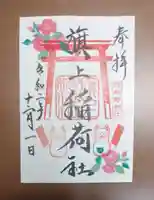 奉拝
旗上稲荷社
令和二年
十二月一日